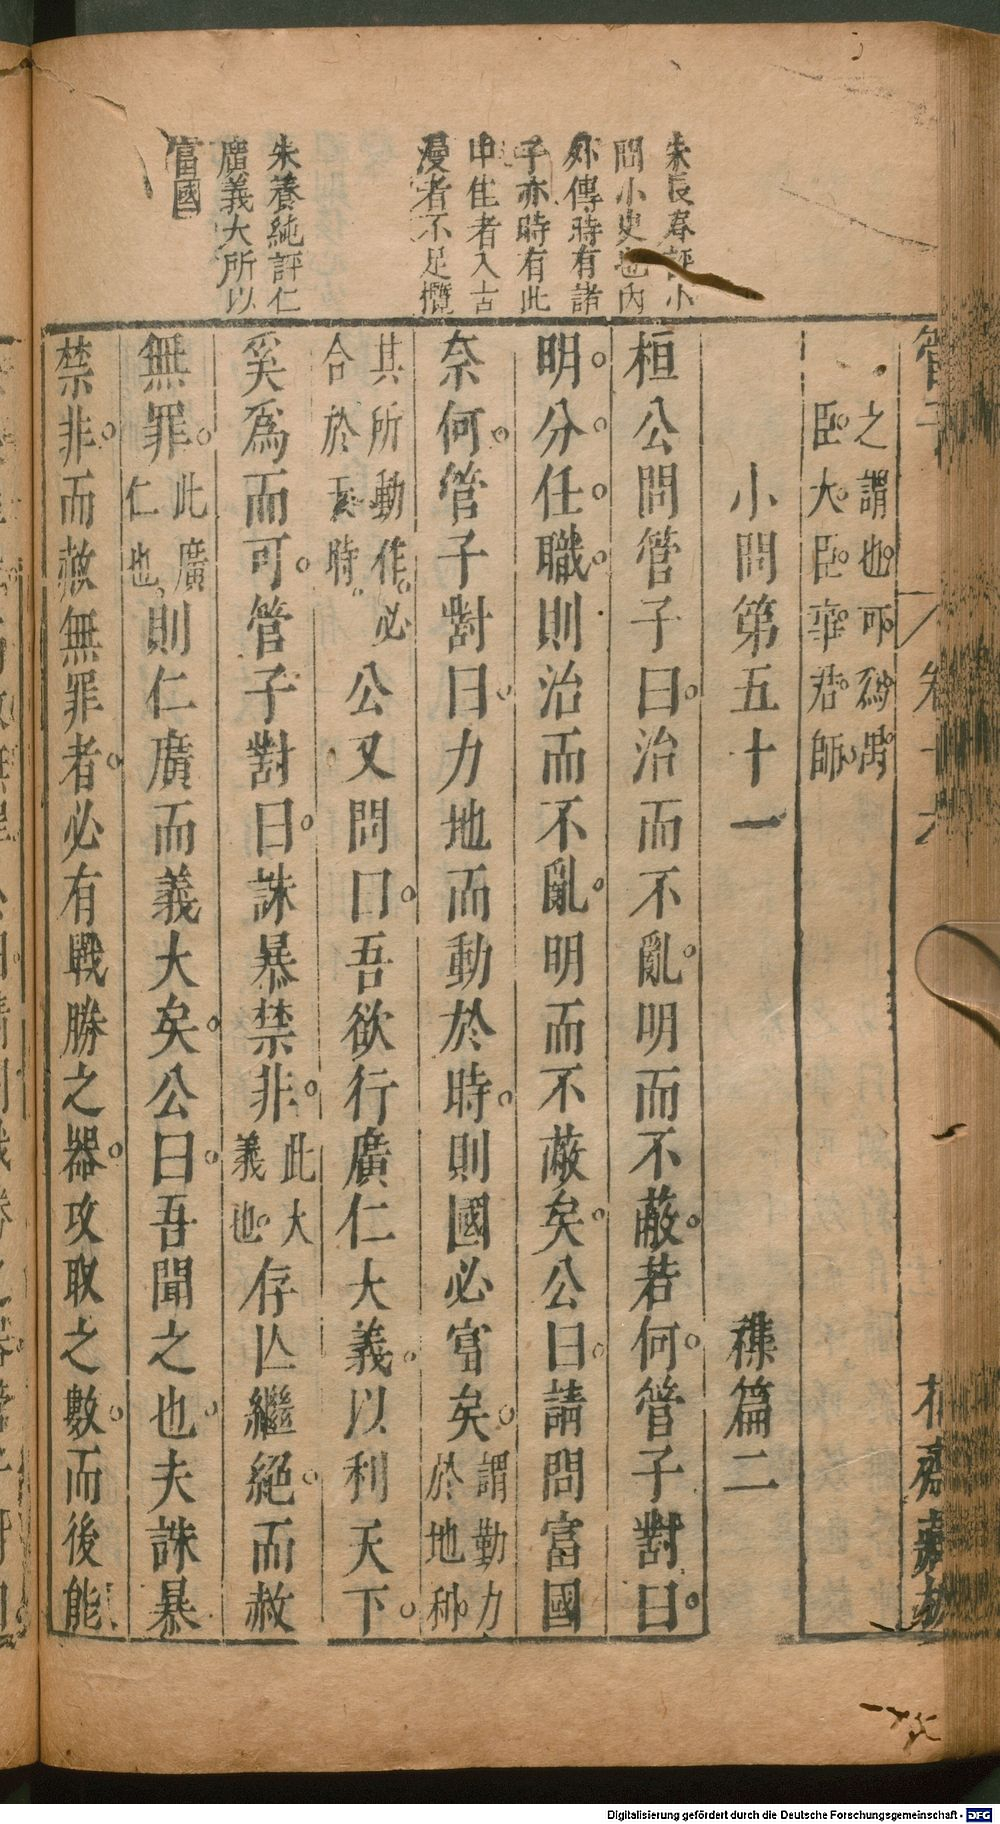 朱長春評小
問小史也內
外傳時有諸
子亦時有此
中隹者入古
漫者不足攬
朱養純評仁
廣義大所以
富國
管子
卷十六
花齋藏板
之謂也可爲禺
臣大臣率君師
小問第五十一 襍篇二
桓公問管子曰治而不亂明而不蔽若何管子對曰
明分任職則治而不亂明而不蔽矣公曰請問富國
奈何管子對曰力地而動於時則國必富矣謂勤力
於地利
其所動作必
合於天時公又問曰吾欲行廣仁大義以利天下
奚爲而可管子對曰誅暴禁非此大
義也存亾繼絕而赦
無罪此廣
仁也則仁廣而義大矣公曰吾聞之也夫誅暴
禁非而赦無罪者必有戰勝之器攻取之數而後能
Digitalisierung gefördert durch die Deutsche Forschungsgemeinschaft - DFG